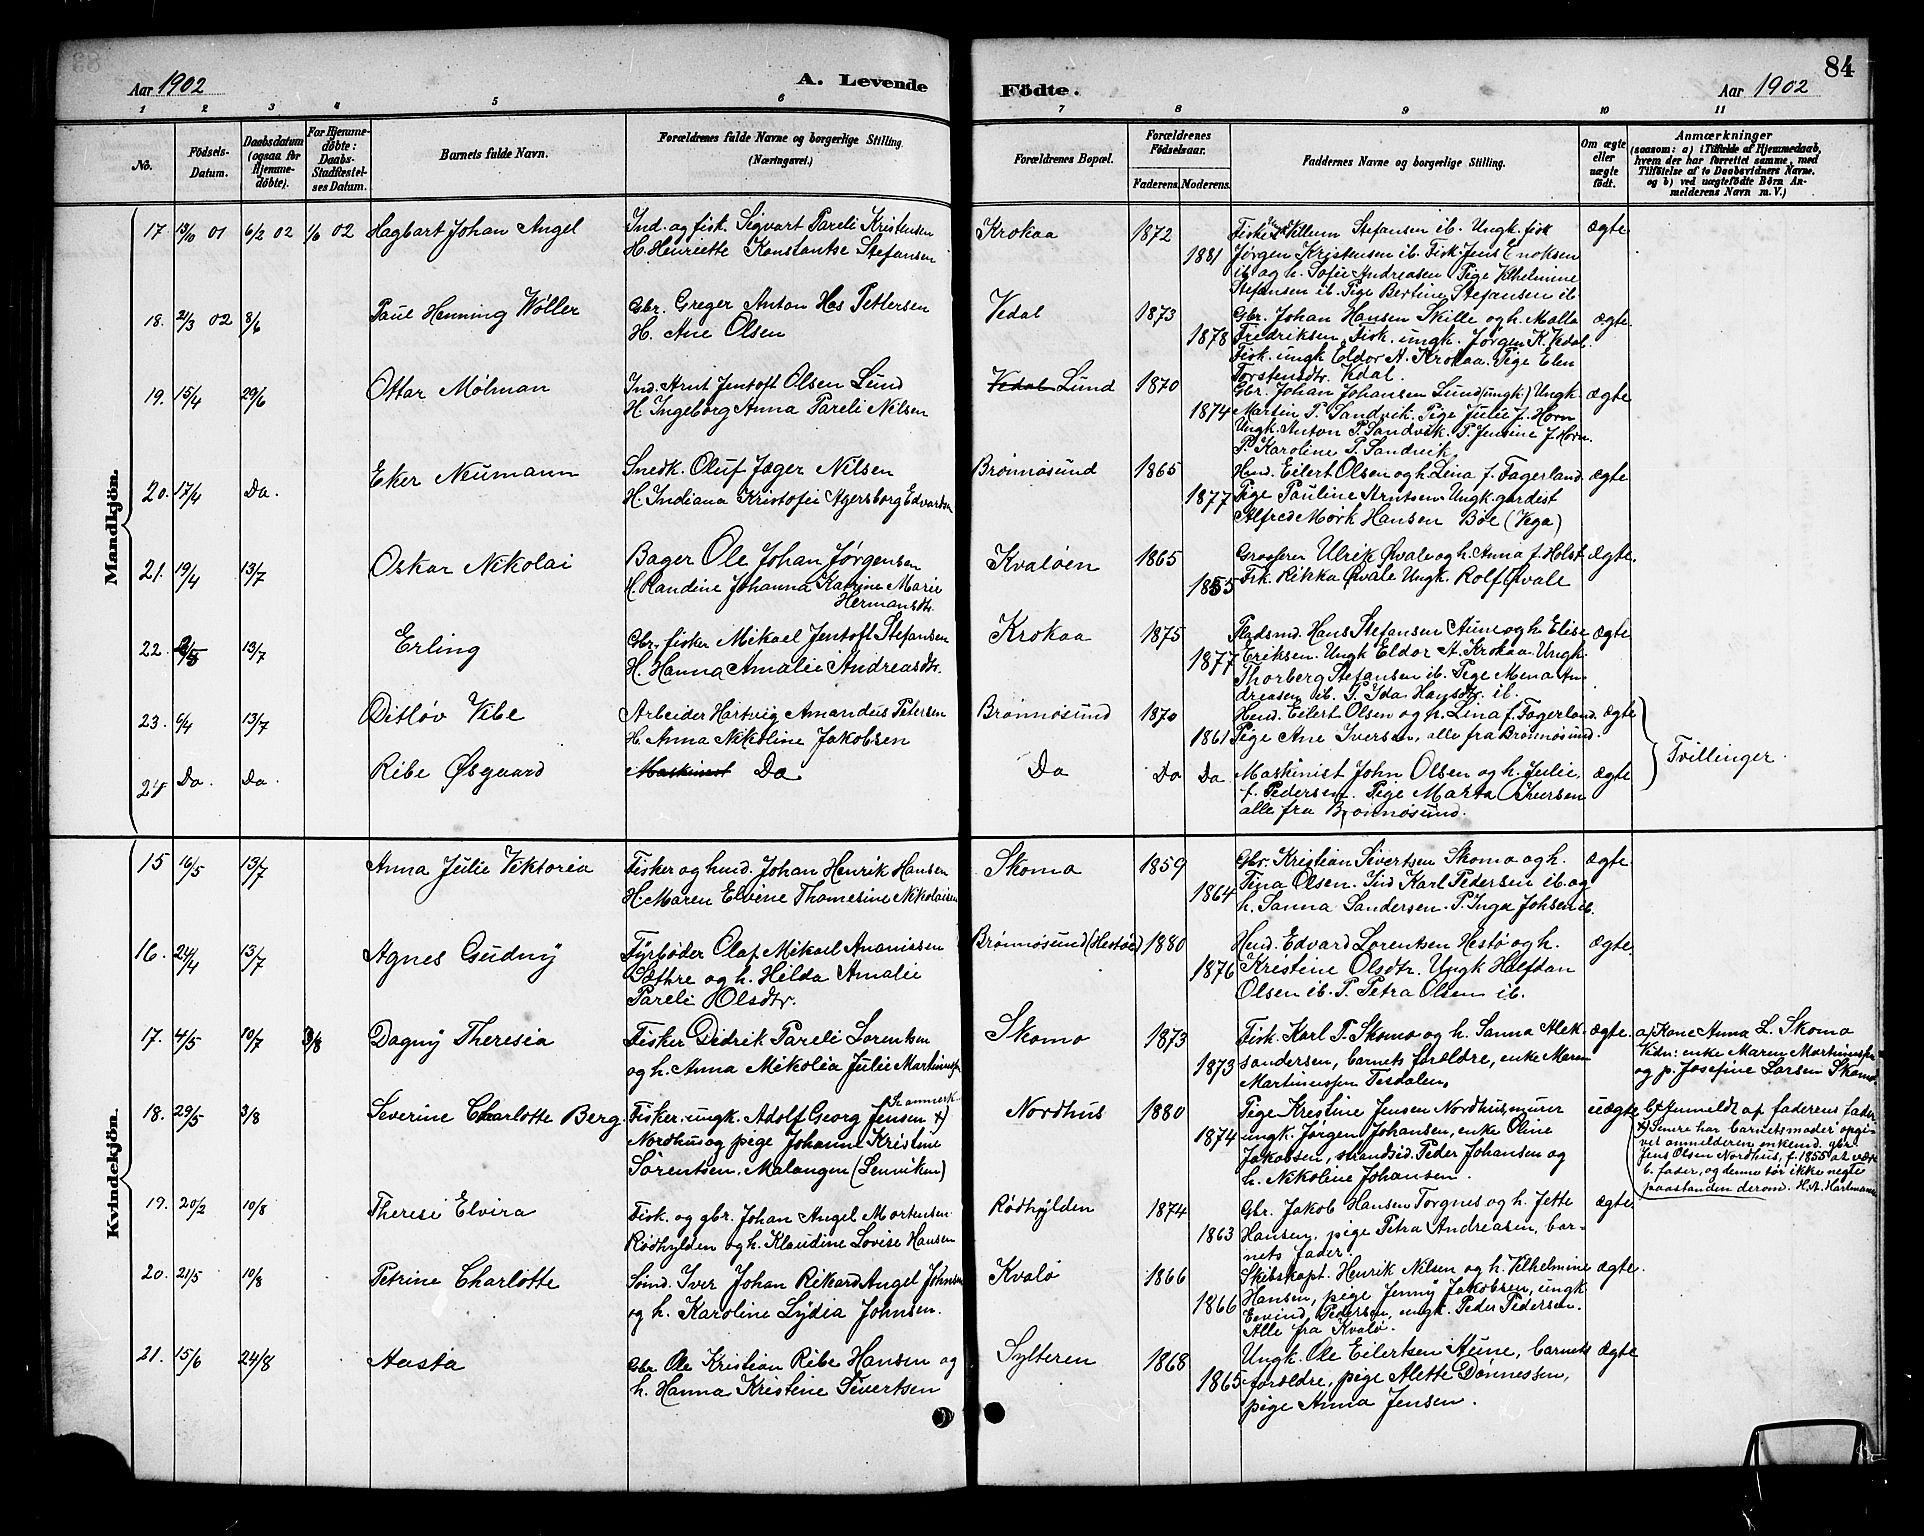 Aar 1902
A. Levende
Födte.
Aar 1902
84
1 2 3 4 5 6 7 8 9 10 11
No.
Födsels-
Datum.
Daabsdatum
(ogsaa for
Hjemme-
döbte).
For Hjemme-
döbte:
Daabs-
Stadfæstel-
ses Datum.
Barnets fulde Navn.
Forældrenes fulde Navne og borgerlige Stilling.
(Næringsvei.)
Forældrenes Bopæl.
Forældrenes
Födselsaar.
Faderens. Moderens.
Faddernes Navne og borgerlige Stilling.
Om ægte
eller
uægte
födt.
Anmærkninger
(saasom: a) i Tilfælde af Hjemmedaab,
hvem der har forrettet samme, med
Tilföielse af to Daabsvidners Navne.
og b) ved uægtefödte Börn An-
melderens Navn m. V.)
Mandkjön.
17. 13/10 01 6/2 02 1/6 02 Hagbart Johan Angel
Ind. og fisk. Sigvart Pareli Kristensen
H. Henriette Konstantse Stefansen
Krokaa 1872 1881
Fisker Villum Stefansen ib. Ungk. fisk
Jørgen Kristensen ib. Fisk. Jens Enoksen
ib og h. Sofie Andreasen Pige Vilhelmine
Stefansen ib. Pige Bertine Stefansen ib.
ægte
18. 21/3 02 8/6 Paul Henning Wøller
Gbr. Greger Anton Has Pettersen
H. Ane Olsen
Vedal 1873 1878
Gbr. Johan Hansen Skille og h. Malla
Fredriksen, Fisk. ungk. Jørgen K. Vedal.
Fisk. ungk Eldor A. Krokaa. Pige Elen
Torstensdtr. Vedal.
ægte.
19. 15/4 29/6 Ottar Mølman
Ind. Arnt Jentoft Olsen Lund
H. Ingeborg Anna Pareli Nilsen
Vedal Lund 1870 1874
Gbr. Johan Johansen Lund (ungk.) Ungk.
Martin P. Sandvik. Pige Julie J. Horn
Ungk. Anton P. Sandvik. P. Jensine J. Horn.
P. Karoline P. Sandvik
ægte
20. 17/4 Do. Eker Neumann
Snedk. Oluf Jæger Nilsen
H. Indiana Kristofie Agersborg Edvardsen
Brønnøsund 1865 1877
Hmd. Eilert Olsen og h. Lina f. Fagerland.
Pige Pauline Arntsen Ungk. gardist
Alfred Mørk Hansen Bøe (Vega)
ægte
21. 19/4 13/7 Oskar Nikolai
Bager Ole Johan Jørgensen
H. Randine Johanna Katrine Marie
Hermansdtr.
Kvaløen 1865 1855
Grosserer Ulrik Øvale og h. Anna f. Holst
Frk. Rikka Øvale Ungk. Rolf Øvale
ægte.
22. 2/5 13/7 Erling
Gbr. fisker Mikael Jentoft Stefansen
H. Hanna Amalie Andreasdtr.
Krokaa 1875 1877
Pladsmd. Hans Stefansen Aune og h. Elise
Eriksen. Ungk Eldor A. Krokaa. Ungk.
Thorberg Stefansen ib. Pige Mena An-
dreasen ib. P. Ida Hansdtr. ib.
ægte
23. 6/4 13/7 Ditløv Vibe
Arbeider Hartvig Amandus Petersen
H. Anna Nikoline Jakobsen
Brønnøsund 1870 1861
Hmd. Eilert Olsen og h. Lina f. Fagerland.
Pige Ane Iversen, alle fra Brønnøsund.
ægte
Tvillinger.
24 Do. Do. Ribe Øsgaard
Maskinist Do
Do Do Do
Maskinist John Olsen og h. Julie
f. Pedersen. Pige Marta Iversen
alle fra Brønnøsund.
ægte
Kvindekjön.
15 16/5 13/7 Anna Julie Viktoria
Fisker og hmd. Johan Henrik Hansen
H. Maren Elvine Thomesine Nikolaisen
Skomo 1859 1864
Gbr. Kristian Sivertsen Skomo og h.
Tina Olsen. Ind Karl Pedersen ib. og
h. Sanna Sandersen. P. Inga Johsen ib.
ægte.
16. 24/4 13/7 Agnes Gudny
Fyrbøder Olaf Mikael Ananiassen
Sæthre og h. Hilda Amalie
Pareli Olsdtr.
Brønnøsund (Hestøe) 1880 1876
Hmd. Edvard Lorentsen Hestø og h.
Kristine Olsdtr. Ungk Halfdan
Olsen ib. P. Petra Olsen ib.
ægte.
17. 4/5 10/7 3/8 Dagny Theresia
Fisker Didrik Pareli Lorentsen
og h. Anna Mikolia Julie Martinusdtr
Skomo 1873 1873
Fisk. Karl P. Skomo og h. Sanna Alek-
sandersen, barnets forældre, enke Maren
Martinussen Tesdalen,
ægte.
a/ Kone Anna L. Skomo
Vidn: enke Maren Martinussen
og p. Josefine Larsen Skomo
18. 29/5 3/8 Severine Charlotte Berg.
Se anmerk.
Fisker, ungk. Adolf Georg Jensen x)
Nordhus og pige Johanne Kristine
Sørentsen. Malangen (Lenviken)
Nordhus 1880 1874
Pige Kristine Jensen Nordhus, murer
ungk. Jørgen Johansen, enke Oline
Jakobsen, strandsid. Peder Johansen og
h. Nikoline Johansen.
uægte
b/ Anmeldt af faderens fader
x) Senere har barnets moder opgi-
vet anmelderen enkemd. gbr.
Jens Olsen Nordhus, f. 1855 at være
b. fader, og denne tør ikke negte
paastanden derom. H. A. Hartmann
19. 20/2 10/8 Therese Elvira
Fisk. og gbr. Johan Angel Mortensen
Rødhylden og h. Klaudine Lovise Hansen
Rødhylden 1874 1863
Gbr. Jakob Hansen Torgnes og h. Jette
Hansen, pige Petra Andreasen, bar-
nets fader.
ægte.
20. 21/5 10/8 Petrine Charlotte
Sømd. Iver Johan Rikard Angel Johnsen
og h. Karoline Lydia Johnsen.
Kvalø 1866 1866
Skibskapt. Henrik Nilsen og h. Vilhelmine
Hansen, pige Jenny Jakobsen, ungk
Eivind Pedersen, ungk. Peder Pedersen.
Alle fra Kvalø.
ægte.
21. 15/6 24/8 Aasta
Gbr. Ole Kristian Ribe Hansen og
h. Hanna Kristine Sivertsen
Sylteren 1868 1865
Ungk. Ole Eilertsen Aune, barnets
forældre, pige Alette Dønnessen,
pige Anna Jensen.
ægte